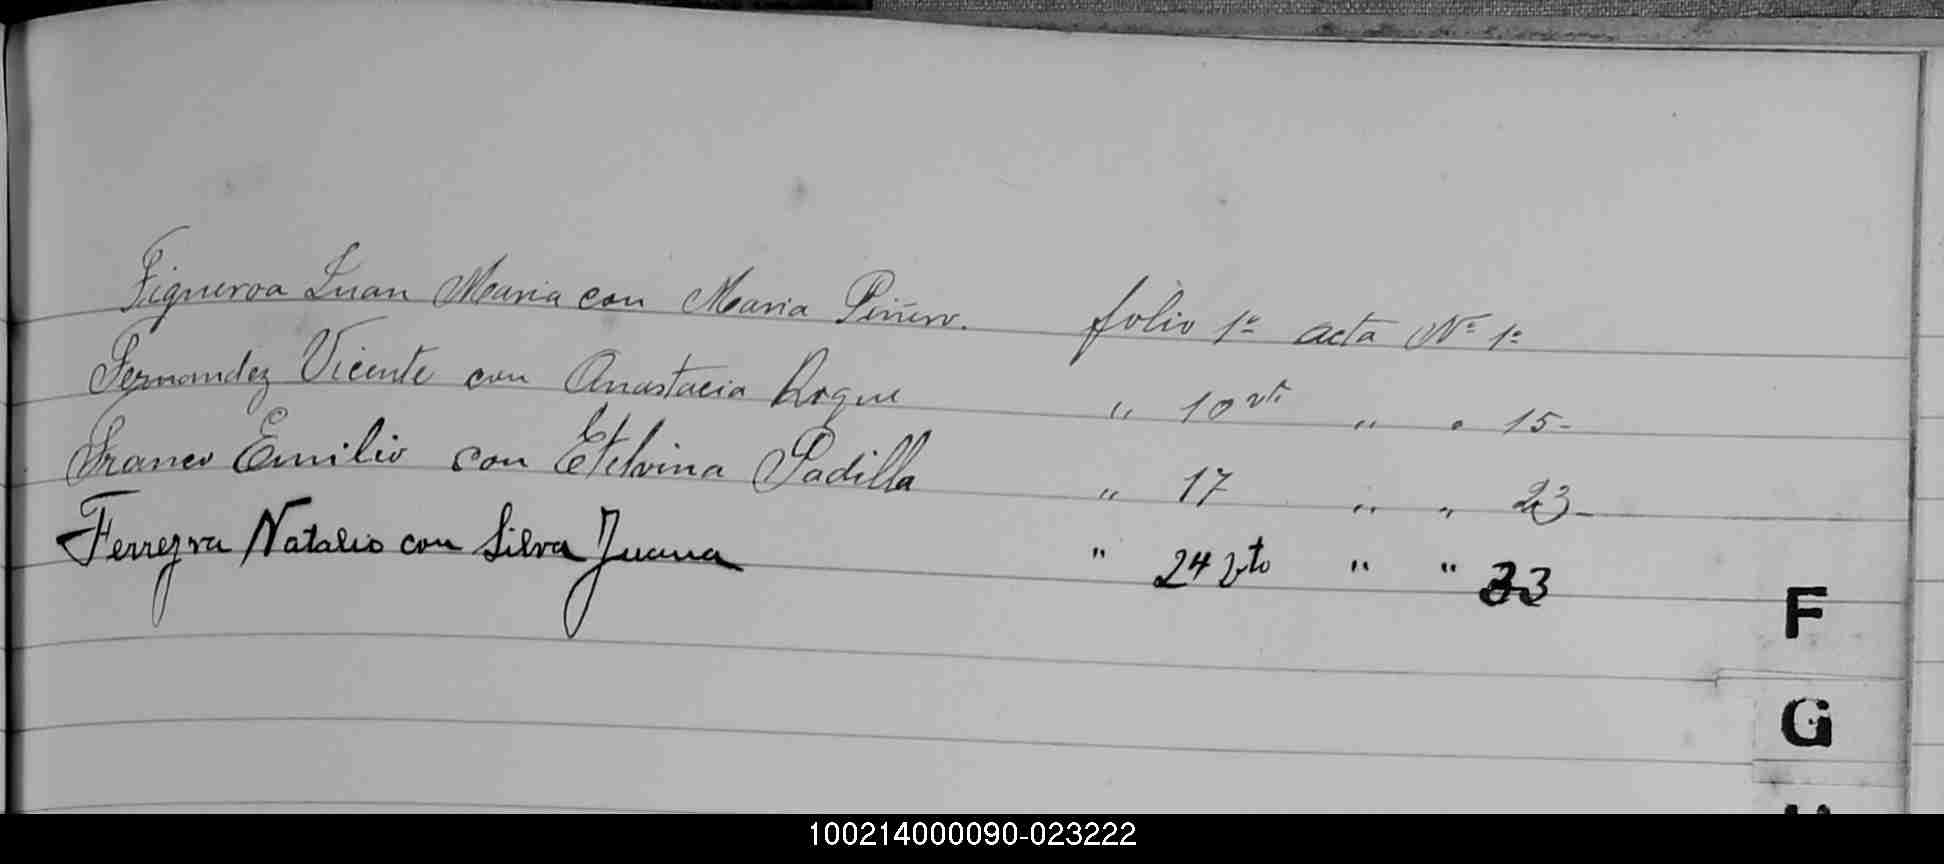 Figueroa Juan Maria con Maria Piñero. folio 1º acta Nº 1º
Fernandez Vicente con Anastacia Roque " 10 vto " " 15-
Franco Emilio con Etelvina Padilla " 17 " " 23-
Ferreyra Natalio con Silva Juana " 24 vto " " 33
F
G
100214000090-023222